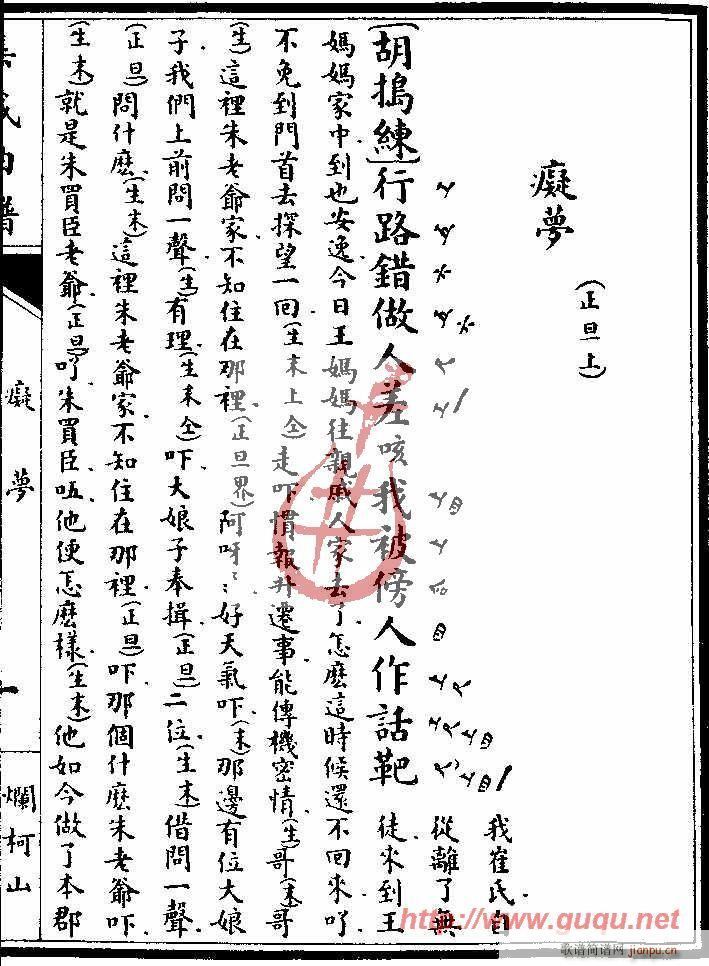 癡夢
(正旦上)
[胡搗練]行路錯做人差咳我被傍人作話靶 我崔氏自
從離了無
徒來到王
媽媽家中到也安逸今日王媽媽往親戚人家去了怎麽這時候還不回來吖
不免到門首去探望一回(生末上仝)走吓慣報升遷事能傳機密情(生)哥(末)哥
(生)這裡朱老爺家不知住在那裡(正旦界)阿呀〻好天氣吓(末)那邊有位大娘
子我們上前問一聲(生)有理(生末仝)吓大娘子奉揖(正旦)二位(生末)借問一聲
(正旦)問什麽(生末)這裡朱老爺家不知住在那裡(正旦)吓那個什麽朱老爺吓
(生末)就是朱買臣老爺(正旦)吖朱買臣唔他便怎麽樣(生末)他如今做了本郡
集成曲譜
癡夢
一
爛柯山
http://www.guqu.net
歌谱简谱网
jianpu.cn